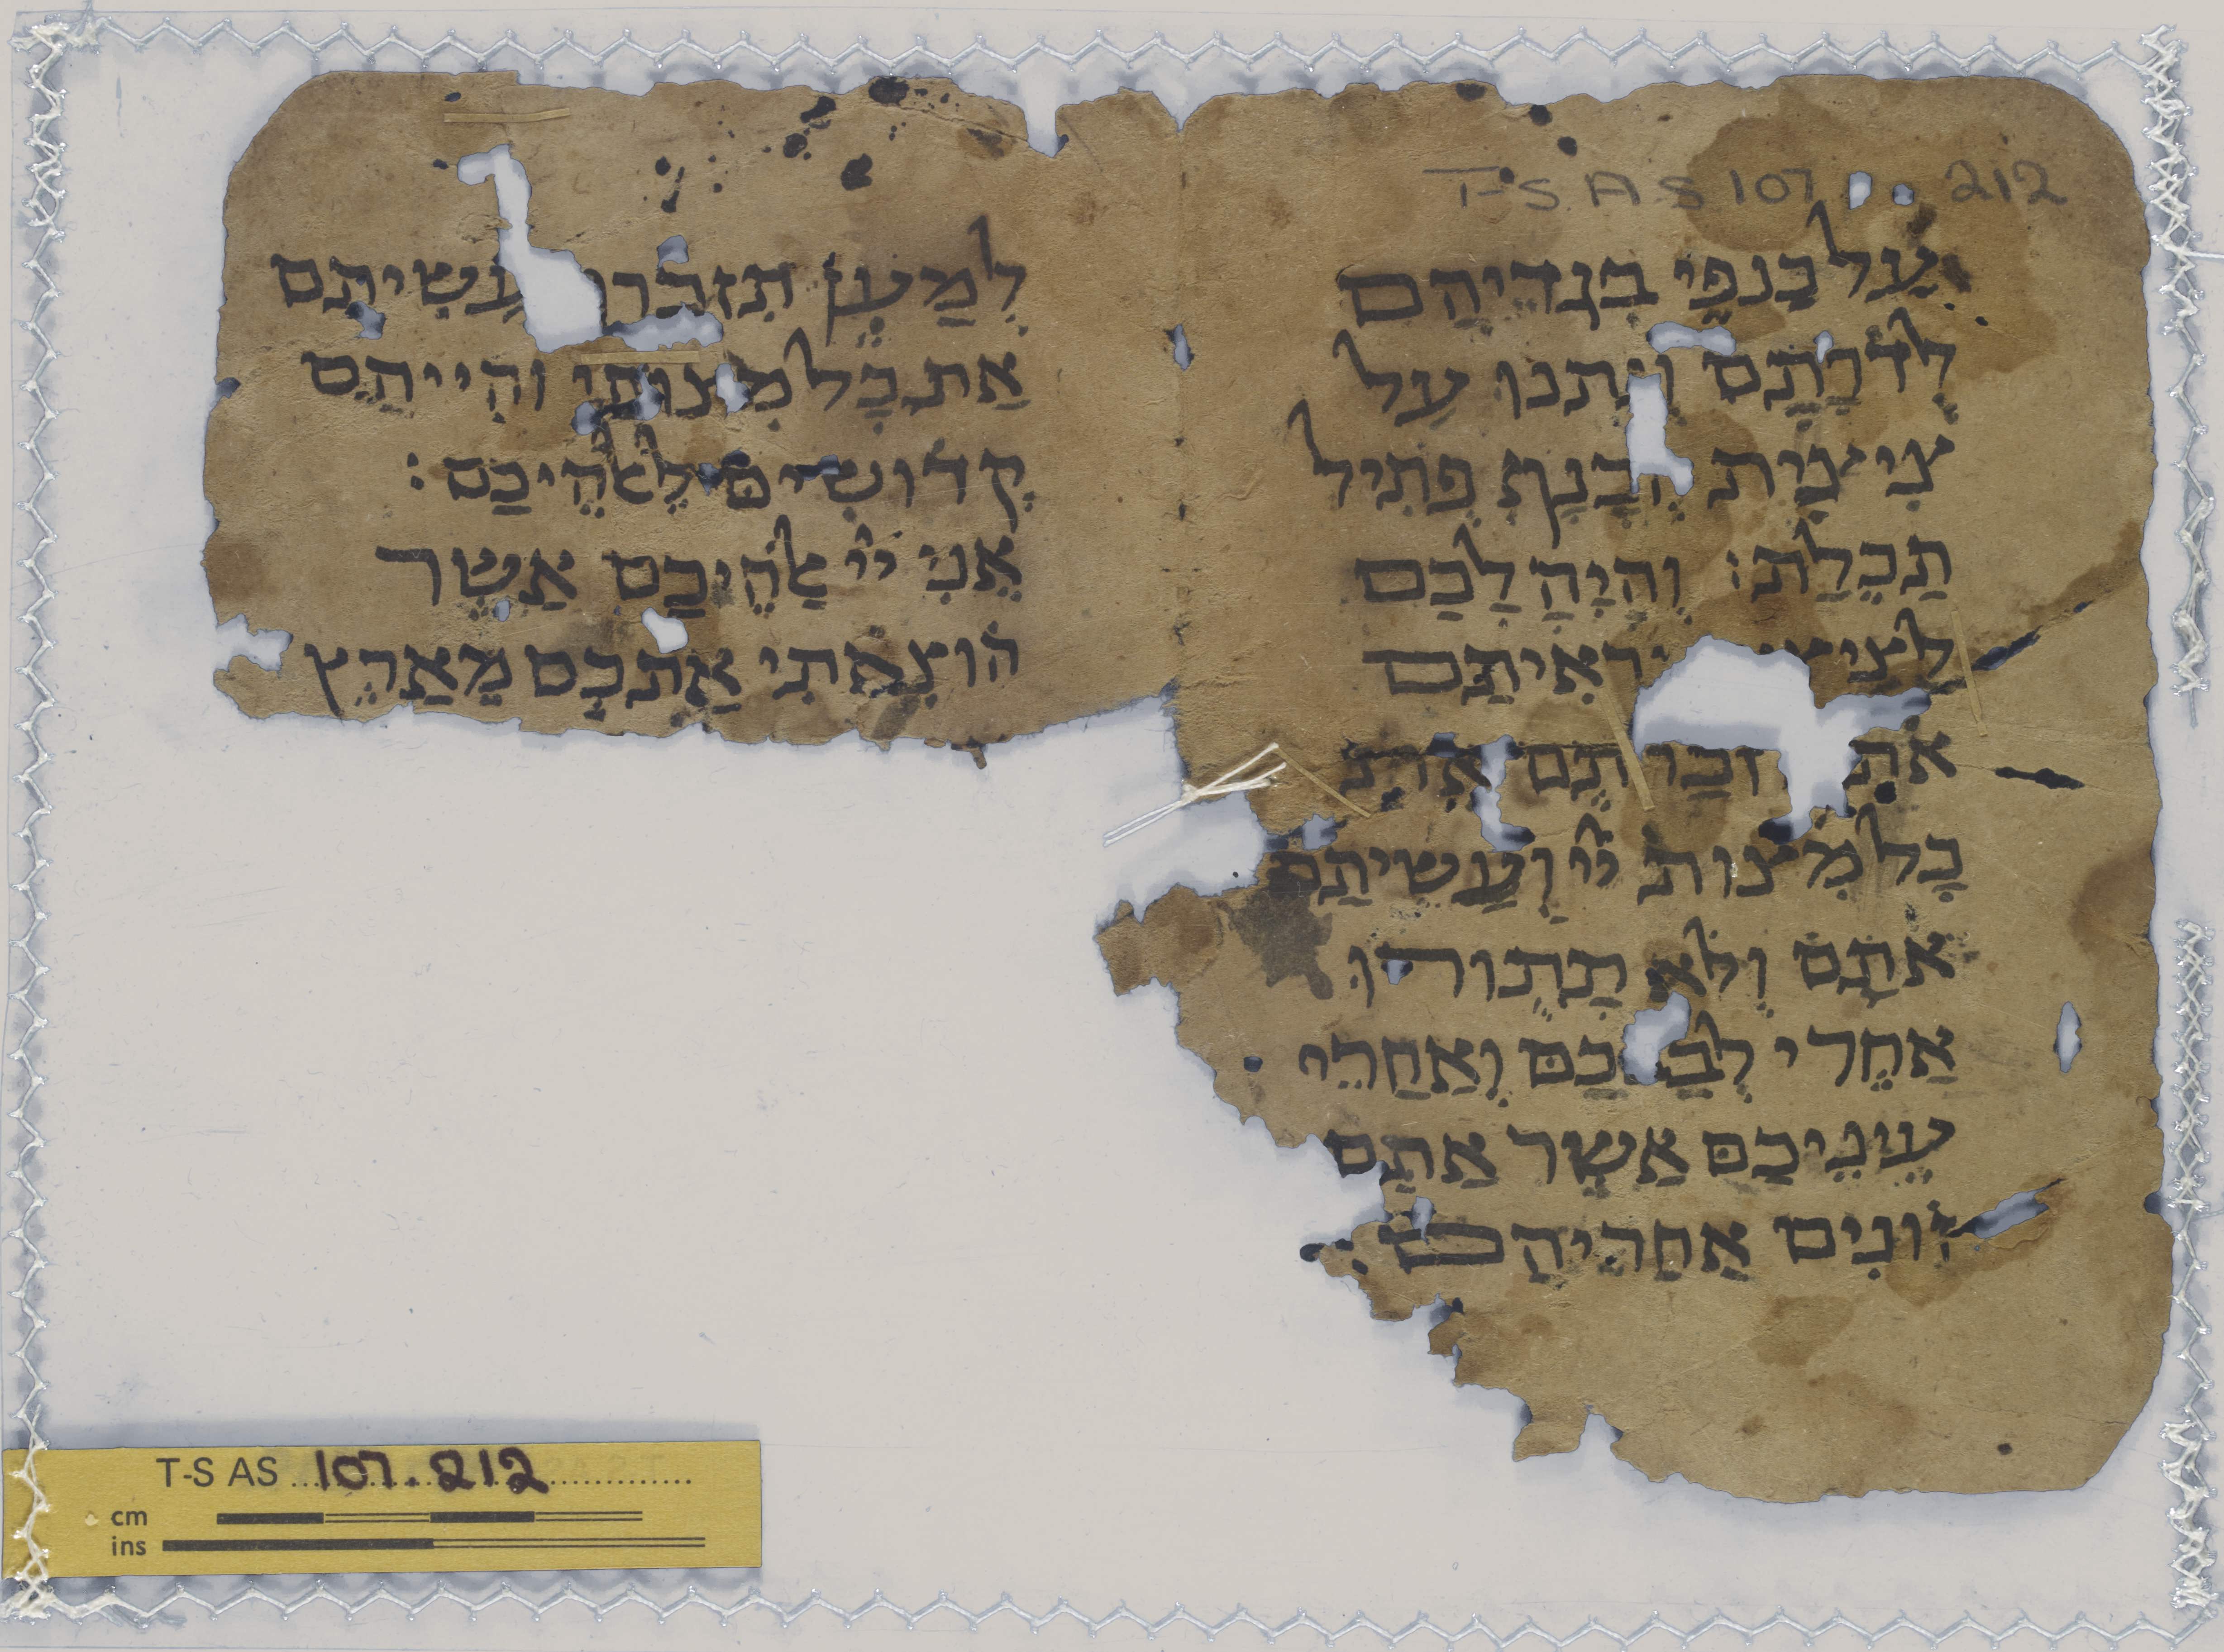 T-S A S 107 . 212
עַל כַנפֵי בִגדֵיהַם
לדֹרֹתַם וְנָתנו על
צִיצִית הָכָנָף פְתִיל
תַכֵלַת: וְהָיָה לַכַם
וראִיתַם
את וזכרתֵם את
כָל מִצות ייי וַעַשִיתַם
אתָם וְלֹא תַתֵורו
אַחֲרי לבבכַם וְאַחֲרֵי
עֵינֵיכַם אַשֵר אַתַם
זונִים אַחֲרֵיהַם:
לְמַעֵן תִזכרו ועשִיתם
אַת כָל מִצותי והִייתַם
קדושִים לֵאלֹהֵיכַם:
אֵנִי ייי אלהֵיכַם אַשֵר
הוצֵאתִי אַתכָם מֵאַרֵץ
T-S AS 107.212
cm
ins